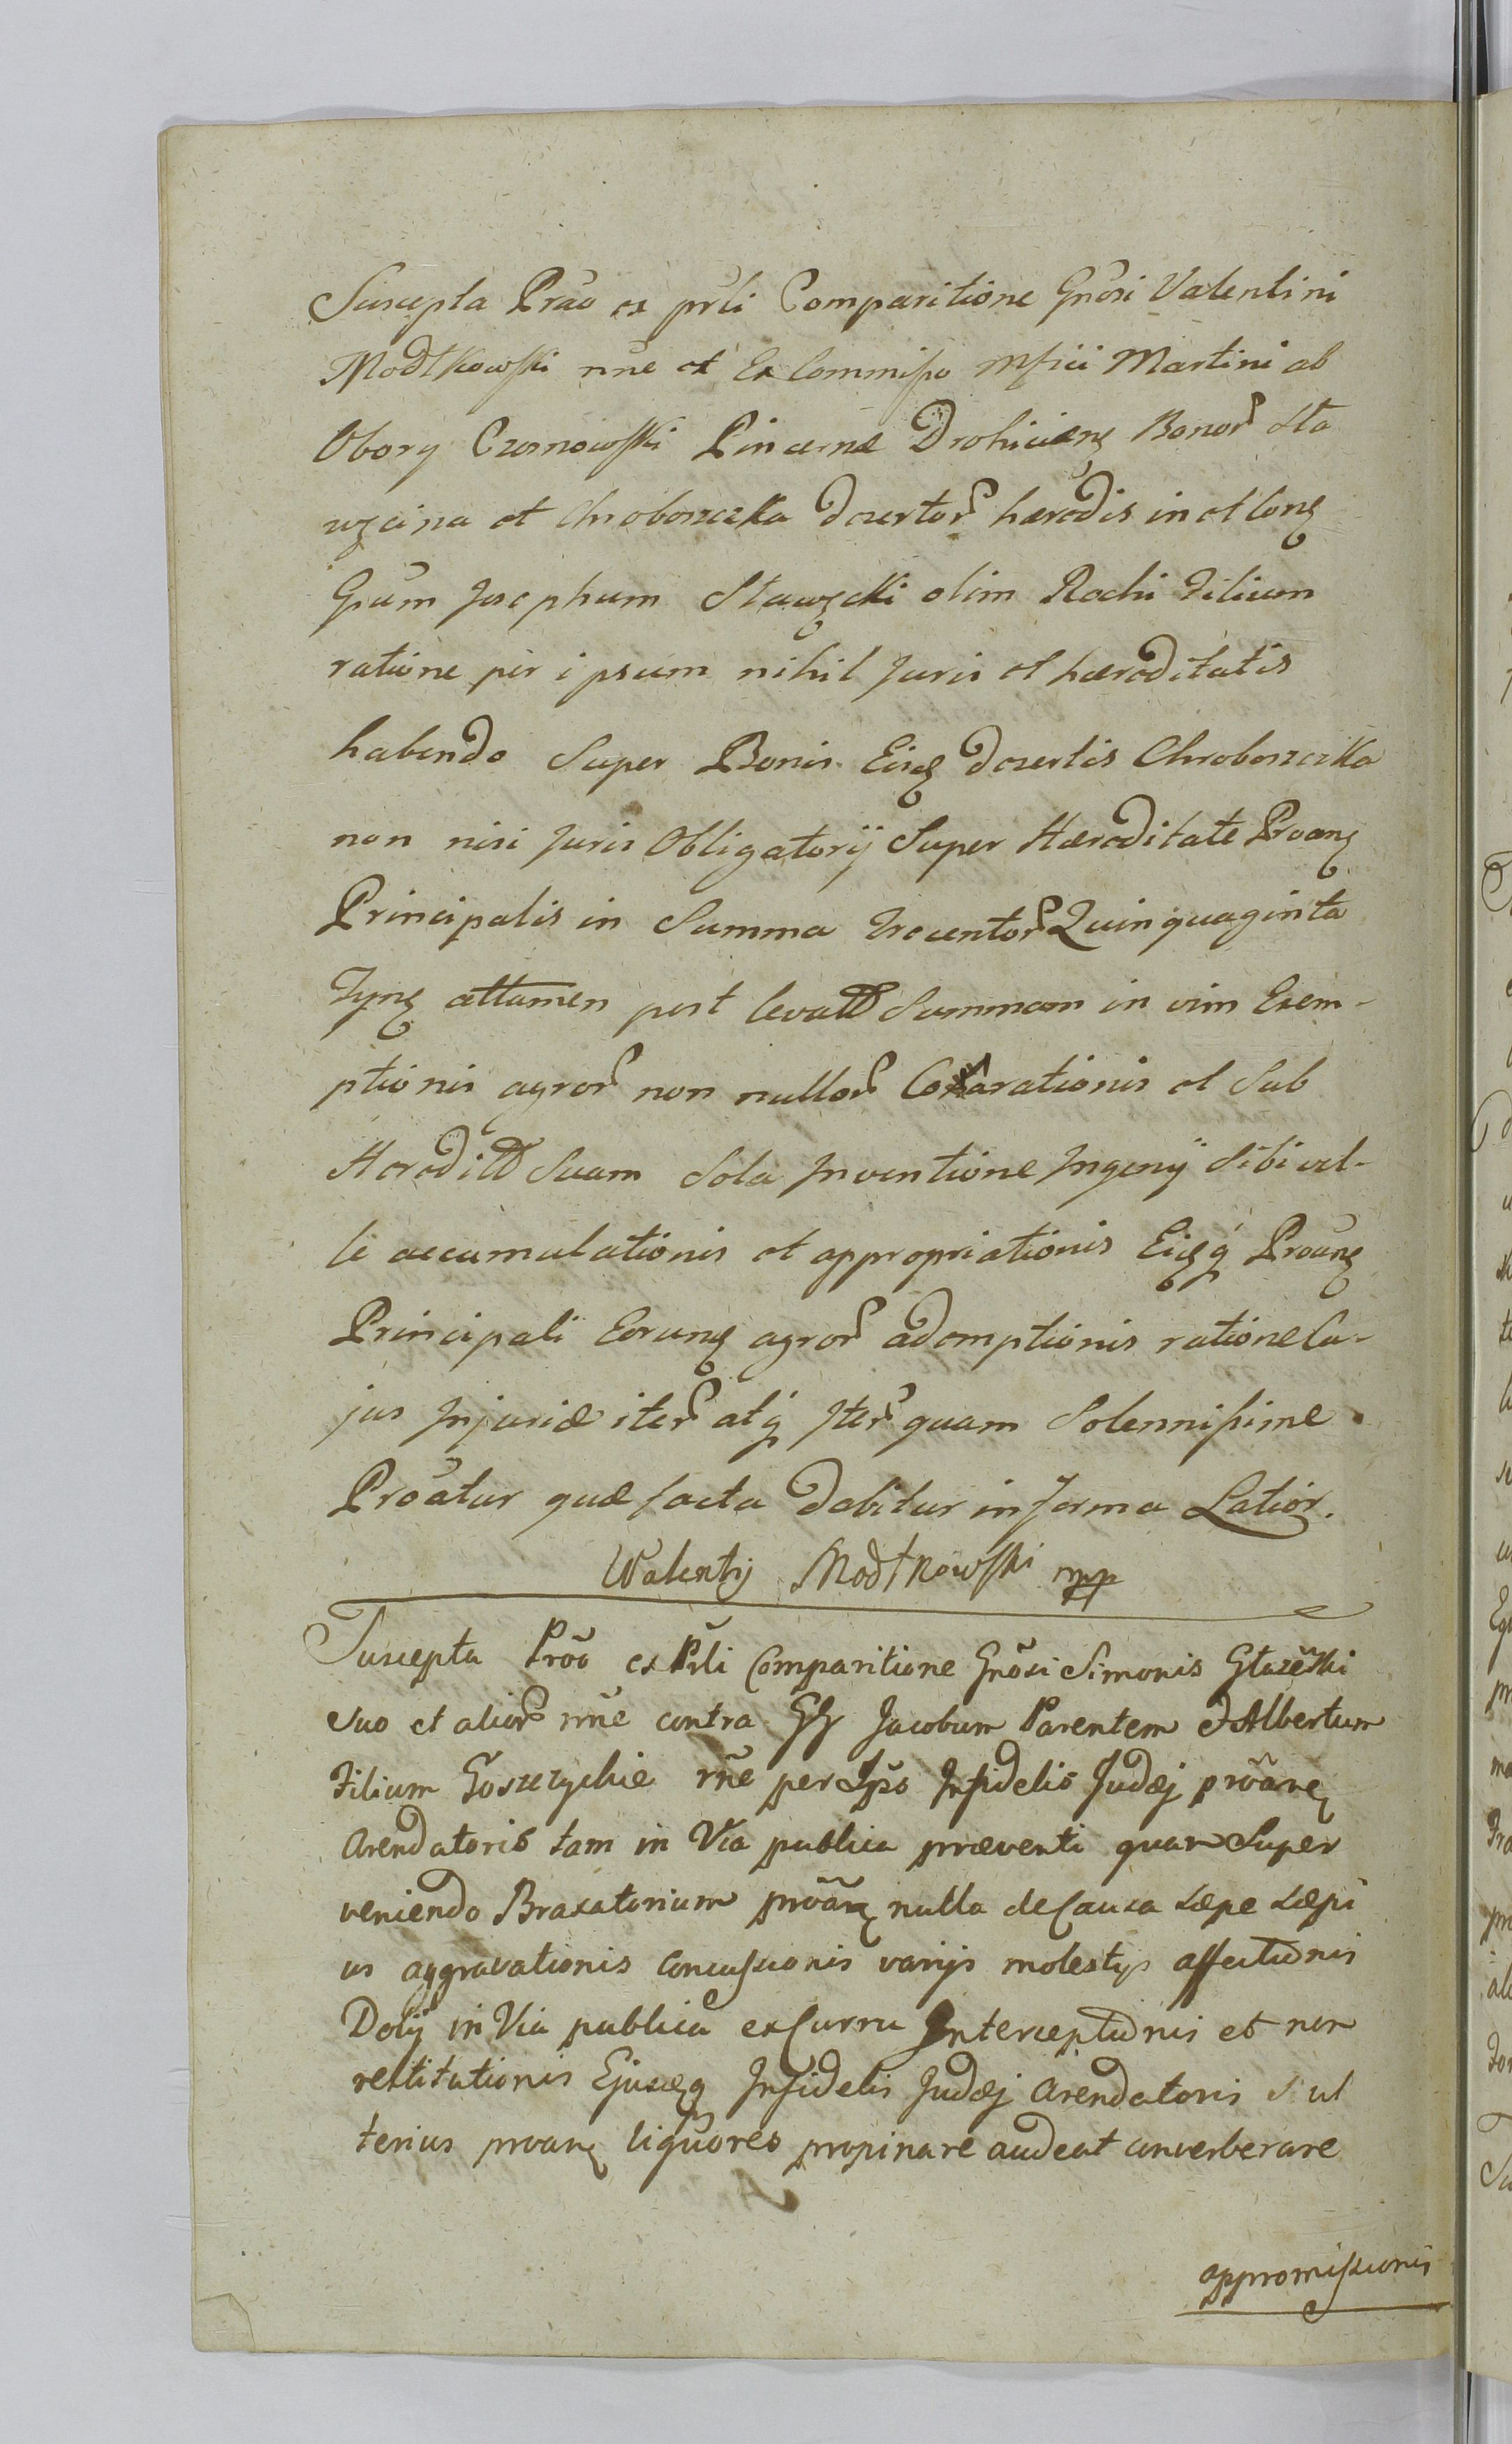 Suscepta Prão ex prīi Comparitione Gnōsi Valentini
Modtkowski nñe et Ex Commisso Mfici Martini ab
Obory Czosnowski Pincernæ Drohiciens Bonor Sta
węcina et Chroboszczka desertor hærēdis in et cons
Gsum Josephum Stawęcki olim Rochi Filium
ratione per ipsum nihil Juris et hæreditatis
habendo Super Bonis Eisd desertis Chroboszczka
non nisi Juris Obligatorij Super Hæreditate Proan
Principalis in Summa Trecentor Quinquaginta
Tynf attamen post levatt Summam in vim Exem-
ptionis agror non nullor Coxarationis et Sub
Hereditt Suam Sola Inventione Ingenij Sibi vel-
le accumulationis et appropriationis Eidq Proan
Principali Eorund agror ademptionis ratione Cu-
jus Injuriæ iter atq Iter quam Solennissime
Proātur quæ facta dabitur in forma Latior.
Walenty Modtkowski mpp
Suscepta Prōo ex Prīi Comparitione Gnōsi Simonis Głazewski
Suo et alior nñe contra GG Jacobum Parentem et Albertum
Filium Goszczyckie rñe per Ips Infidelis Judæj prōan
Arendatoris tam in Via publica præventi quam Super
veniendo Braxatorium prōan nulla de Causa sæpe sæpi
us aggravationis concussionis varijs molestys affectionis
Dolij in Via publica ex Curru Interceptionis et non
restitutionis Ejusdq Infidelis Judæj Arendatoris si ul
terius proan liquores propinare audeat converberare
appromissionis